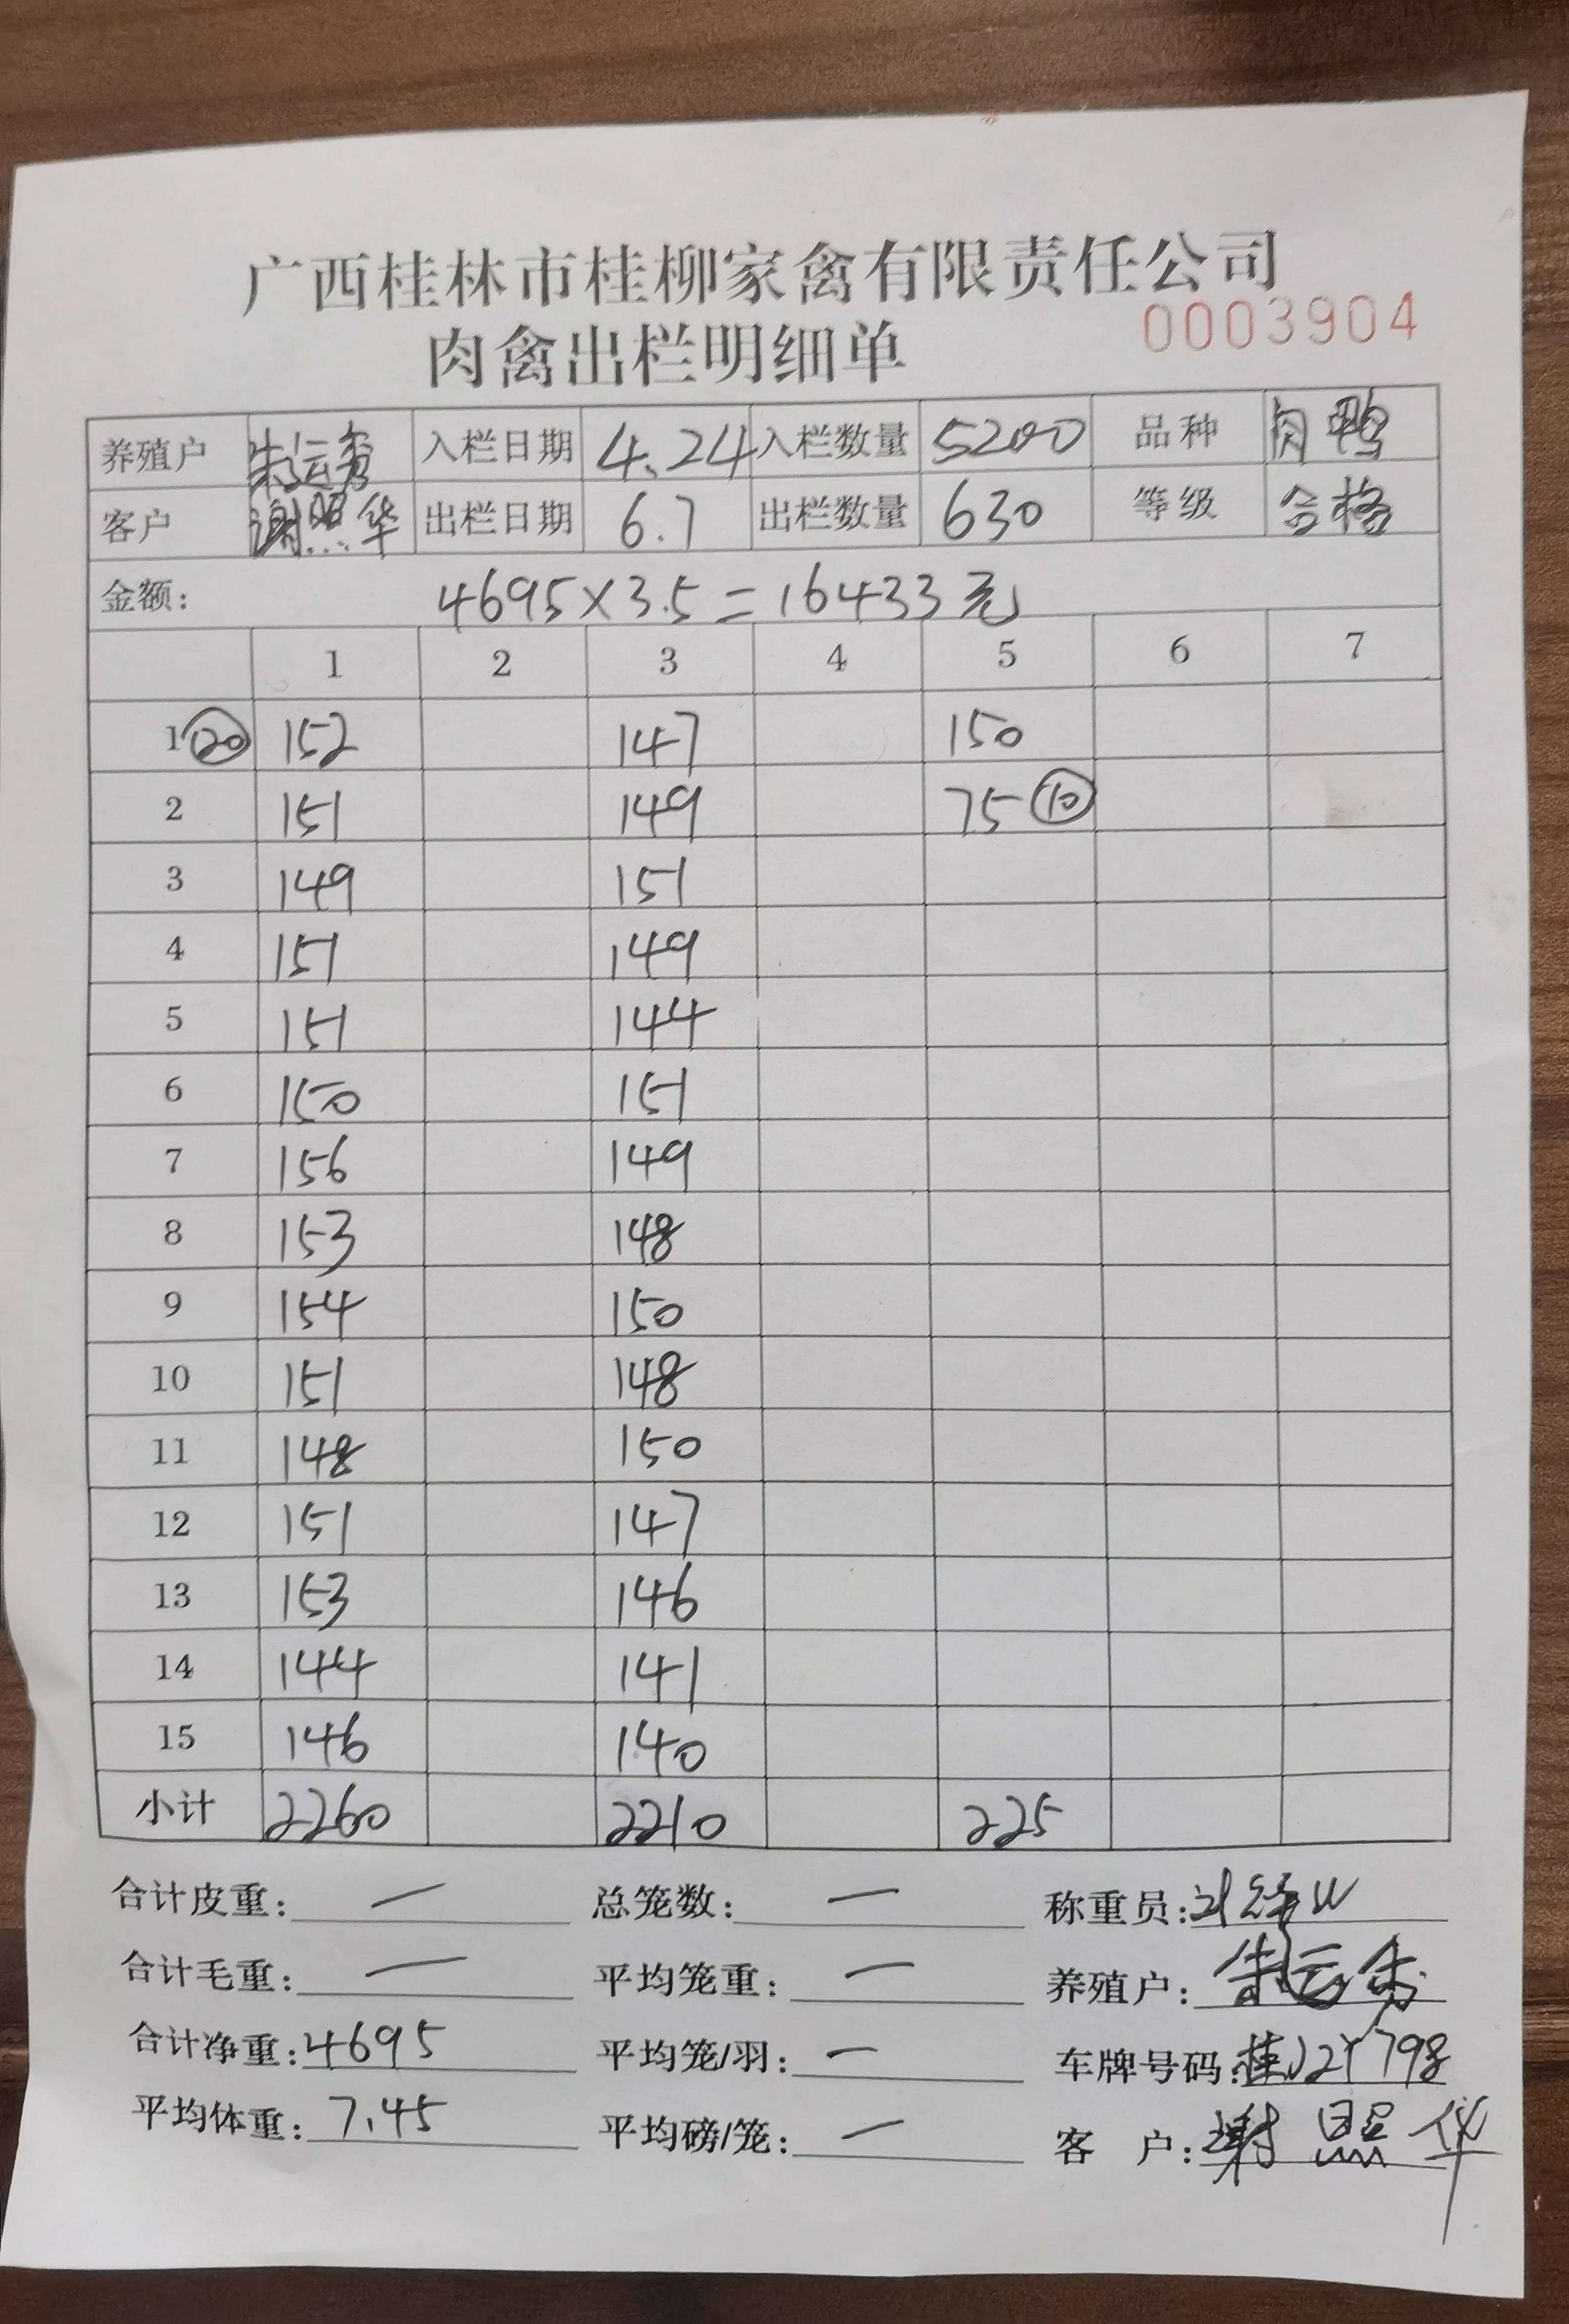 广西桂林市桂柳家禽有限责任公司
肉禽出栏明细单 0003904
养殖户 朱运秀 入栏日期 4.24 入栏数量 5200 品种 肉鸭
客户 谢照华 出栏日期 6.7 出栏数量 630 等级 合格
金额: 4695×3.5=16433元
1 2 3 4 5 6 7
1 20 152 147 150
2 151 149 75 10
3 149 151
4 151 149
5 151 144
6 150 151
7 156 149
8 153 148
9 154 150
10 151 148
11 148 150
12 151 147
13 153 146
14 144 141
15 146 140
小计 2260 2210 225
合计皮重: — 总笼数: — 称重员:
合计毛重: — 平均笼重: — 养殖户: 朱云秀
合计净重: 4695 平均笼/羽: — 车牌号码: 桂J2Y798
平均体重: 7.45 平均磅/笼: — 客 户: 谢照华